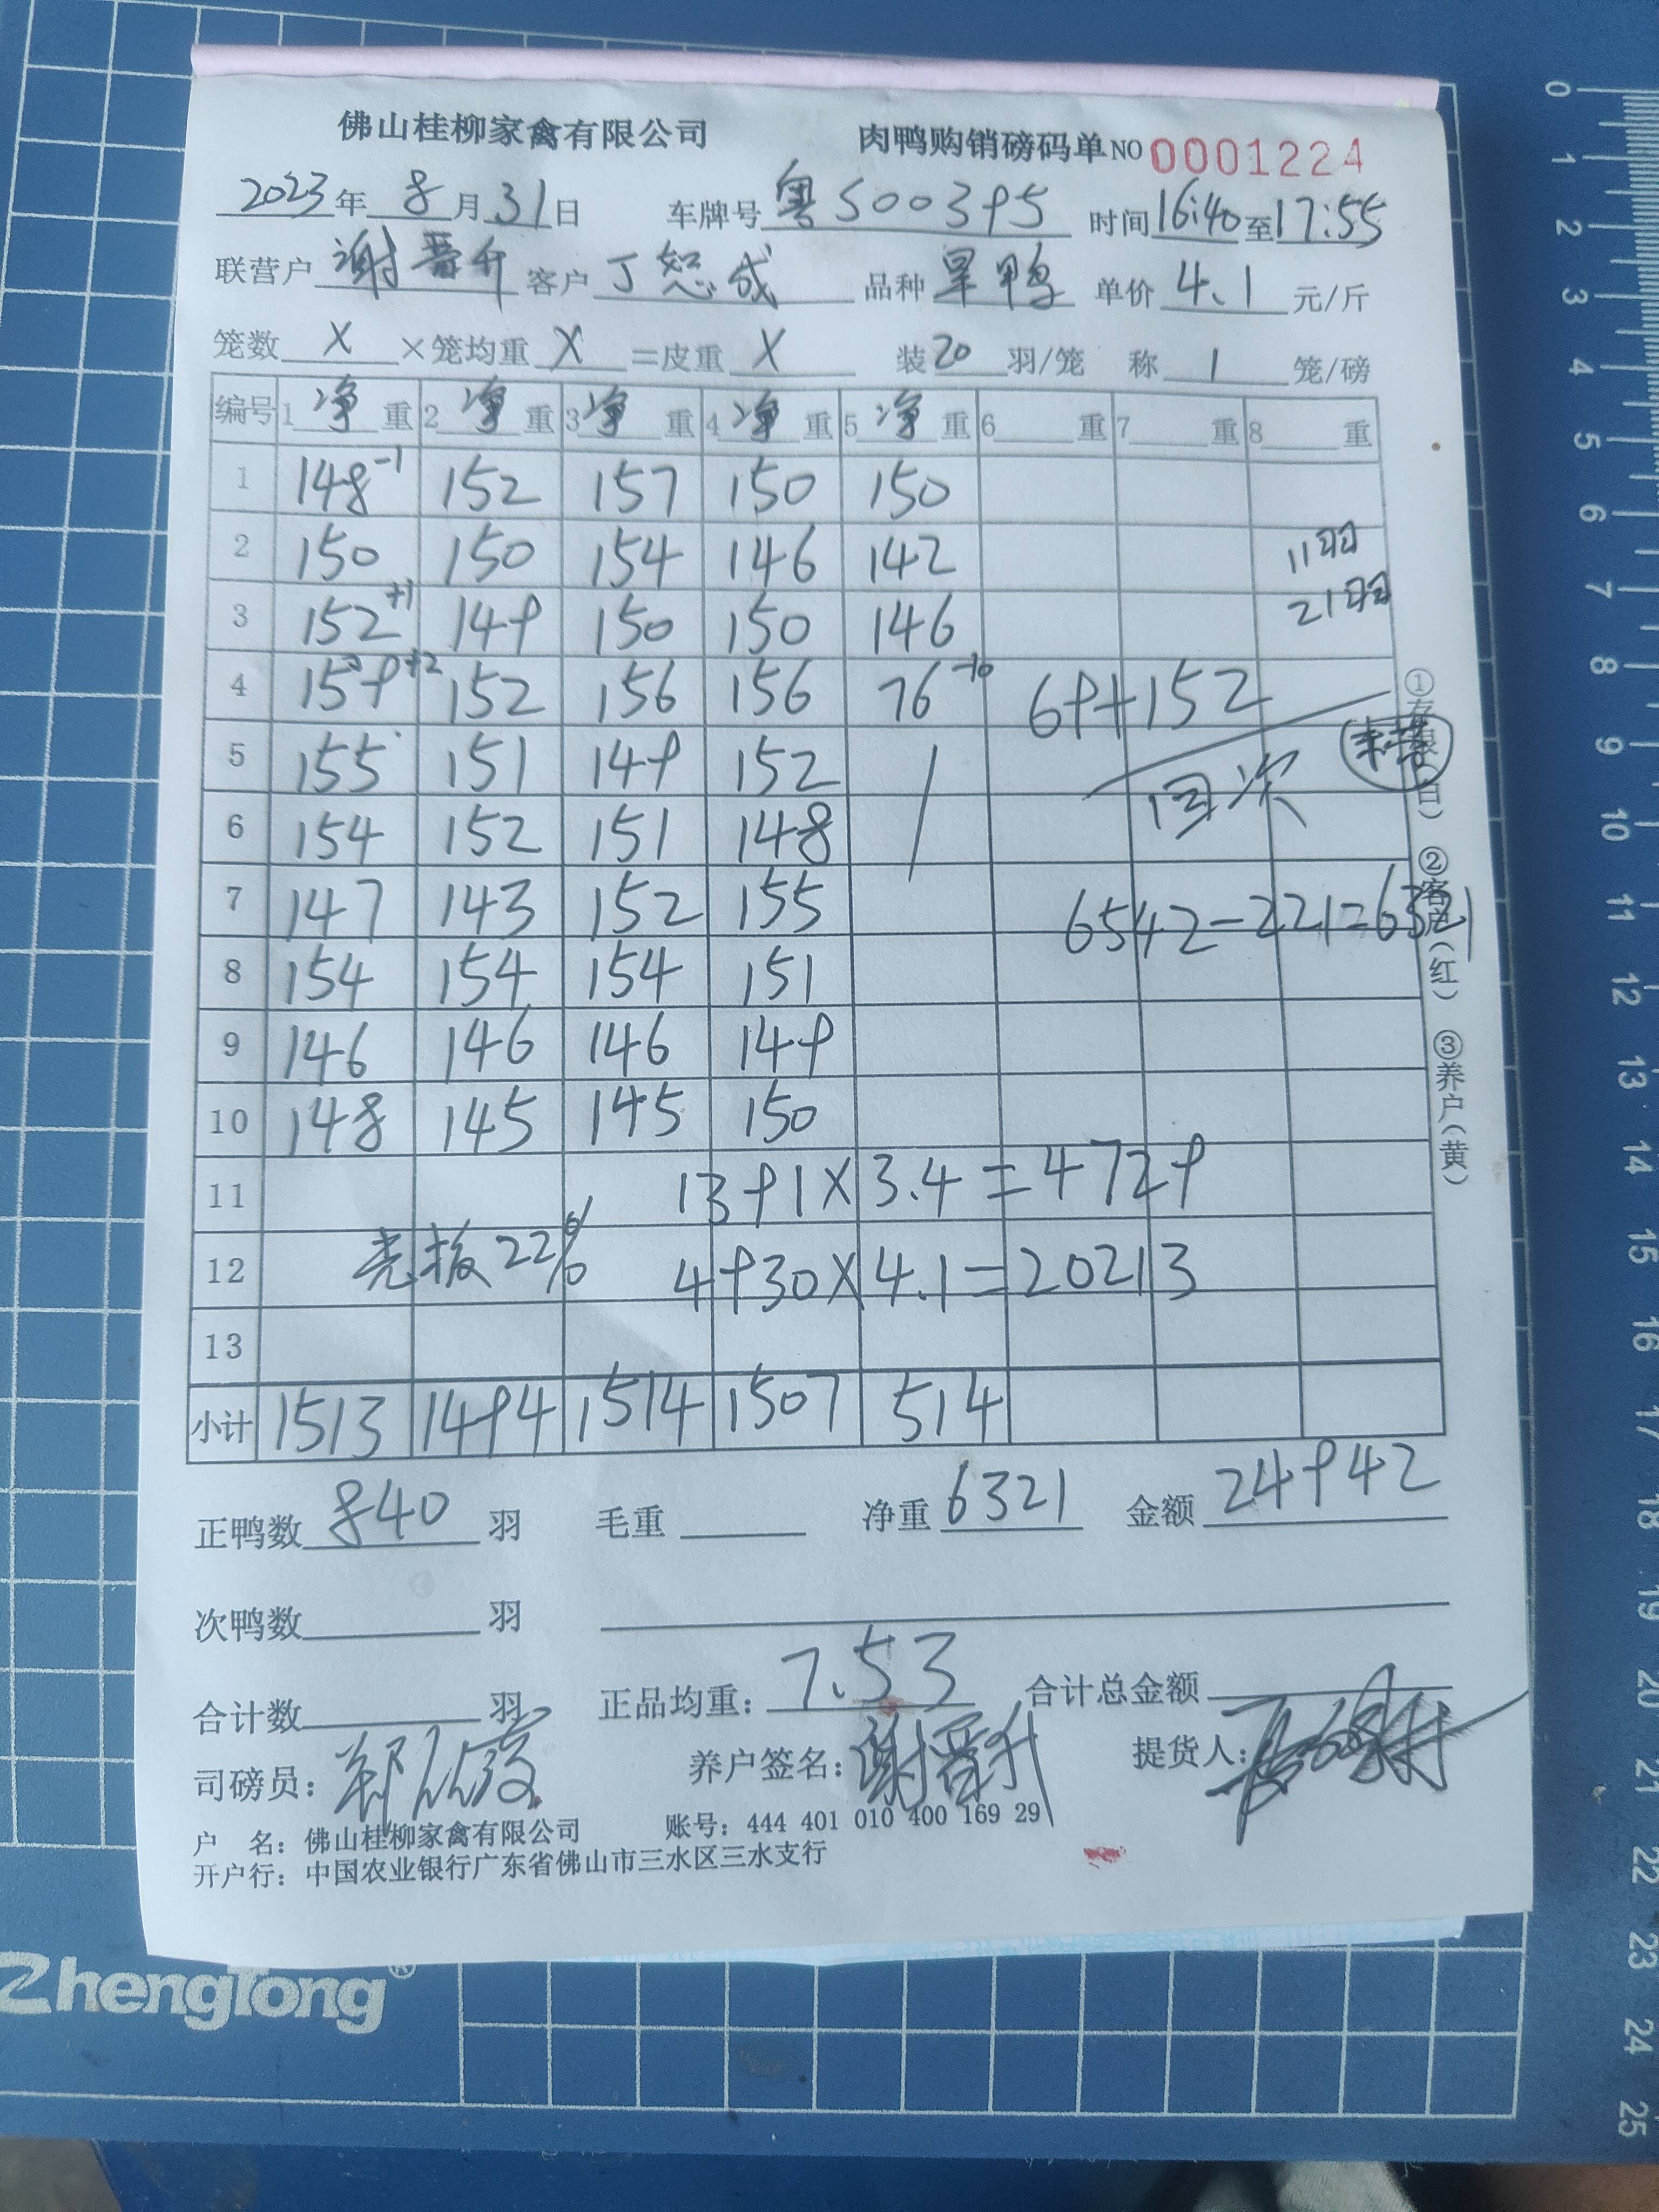 佛山桂柳家禽有限公司 肉鸭购销磅码单NO 0001224
2023年 8月31日 车牌号 粤S00395 时间16:40至17:55
联营户 谢晋升 客户 丁恕成 品种 旱鸭 单价 4.1 元/斤
笼数 X ×笼均重 X =皮重 X 装20羽/笼 称 1 笼/磅
编号 1 净 重 2 净 重 3 净 重 4 净 重 5 净 重 6 重 7 重 8 重
1 148 -1 152 157 150 150
2 150 150 154 146 142 11羽
3 152 +1 149 150 150 146 21羽
4 159 +2 152 156 156 76 -10 69+152
5 155 151 149 152
6 154 152 151 148 回次
7 147 143 152 155 6542-221=6321
8 154 154 154 151
9 146 146 146 149
10 148 145 145 150
11 1391×3.4=4729
12 壳板22% 4930×4.1=20213
13
小计 1513 1494 1514 1507 514
①存根(白) ②客户(红) ③养户(黄)
正鸭数 840 羽 毛重 净重 6321 金额 24942
次鸭数 羽
合计数 羽 正品均重: 7.53 合计总金额
司磅员: 养户签名: 谢晋升 提货人:
户 名: 佛山桂柳家禽有限公司 账号: 444 401 010 400 169 29
开户行: 中国农业银行广东省佛山市三水区三水支行
Zhenglong®
0
1
2
3
4
5
6
7
8
9
10
11
12
13
14
15
16
17
18
19
20
21
22
23
24
25